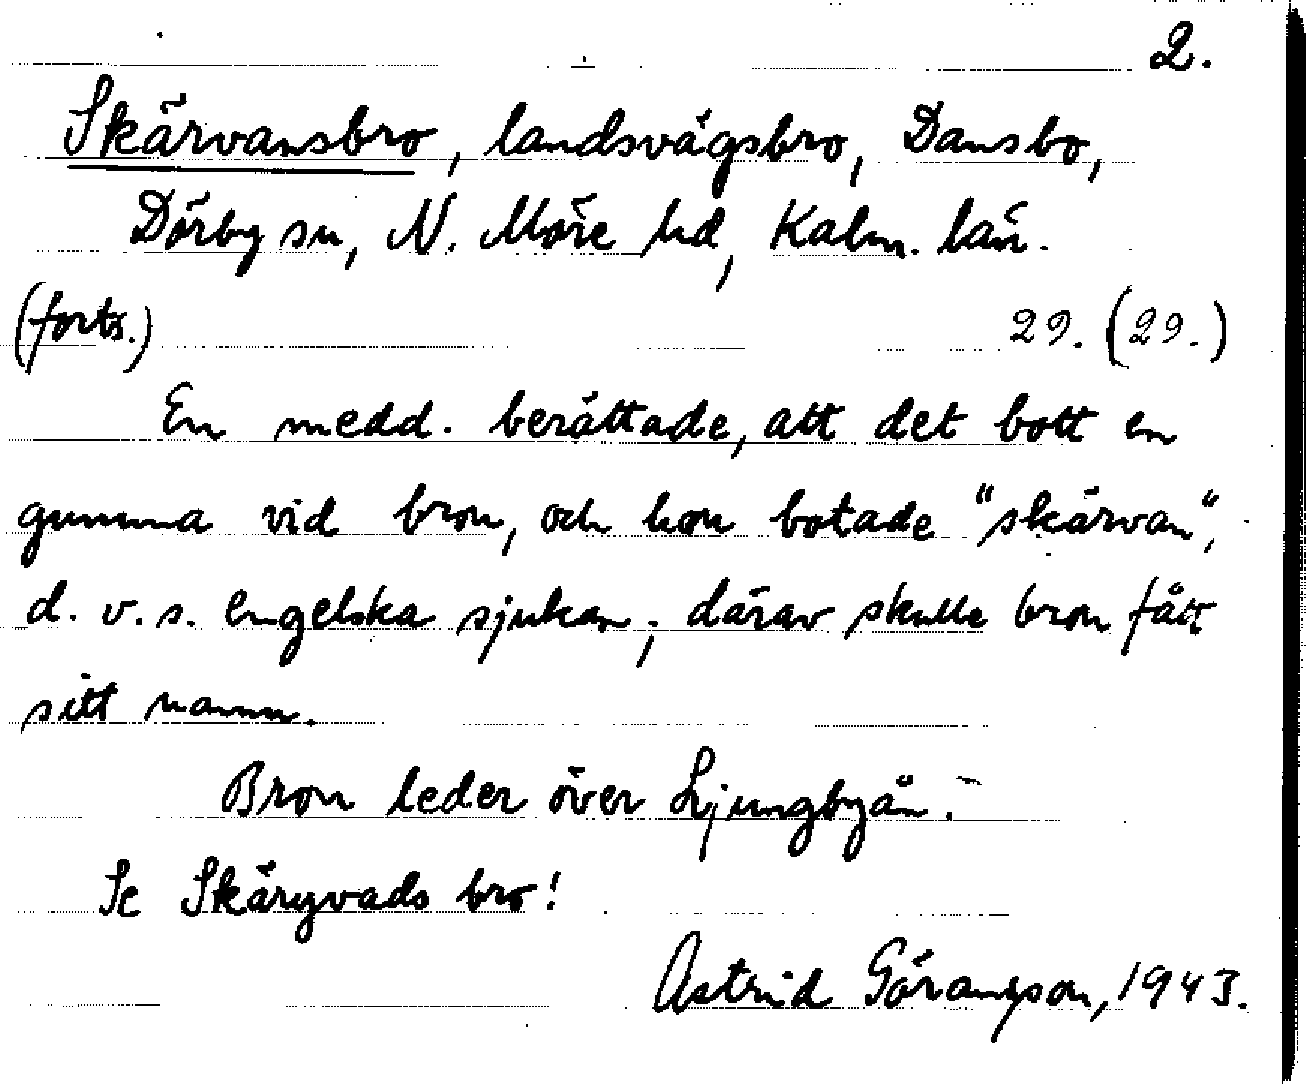 2.
Skärvansbro, landsvägsbro, Dansbo,
Dörby sn, N. Möre hd, Kalm. län.
(forts.) 29. (29.)
En medd. berättade, att det bott en
gumma vid bron, och hon botade "skärvan",
d. v. s. engelska sjukan; därav skulle bron fått
sitt namn.
Bron leder över Ljungbyån.
Se Skäryvads bro!
Astrid Göransson, 1943.